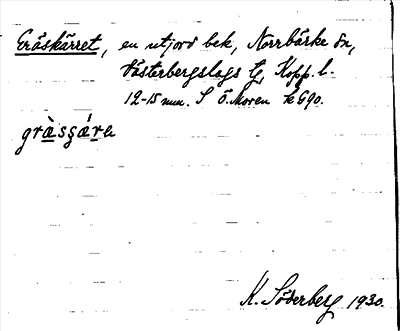 Gråskärret, en utjord bek, Norrbärke sn,
Västerbergslags tg, Kopp. l.
12-15 mm. S Ö. Moren k G90.
gràsgǽra
K. Söderberg 1930.